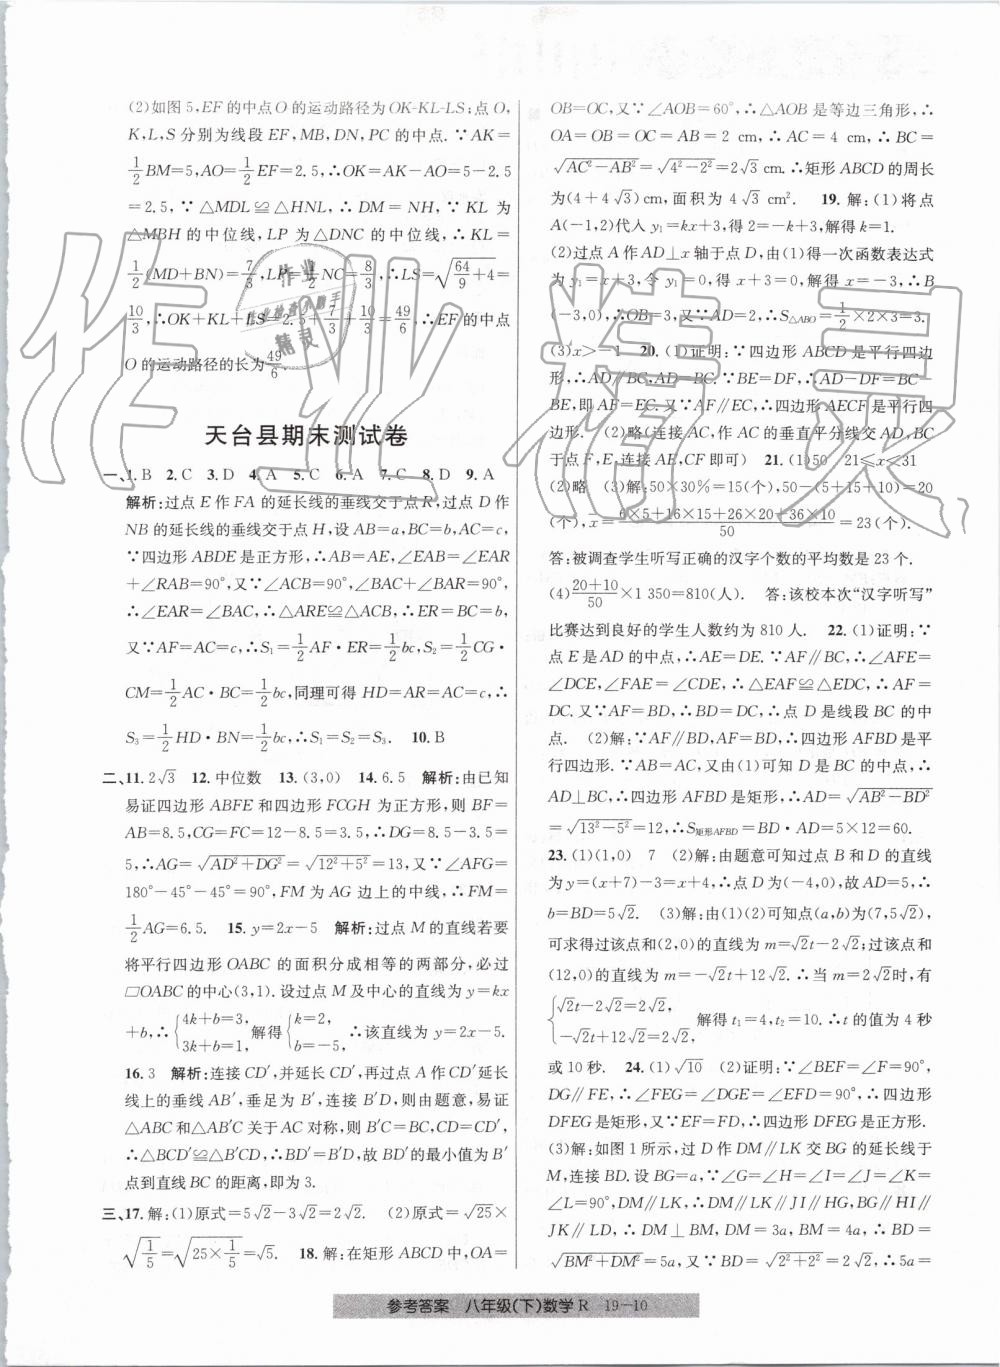 (2)如图 5,EF 的中点 O 的运动路径为 OK-KL-LS;点 O,
K,L,S 分别为线段 EF,MB,DN,PC 的中点. ∵AK=
1/2 BM=5,AO=1/2 EF=2.5,∴OK=AK-AO=5-2.5
=2.5,∵△MDL≌△HNL,∴DM=NH,∵KL 为
△MBH 的中位线,LP 为△DNC 的中位线,∴KL=
1/2(MD+BN)=7/3,LP=1/2 NC=8/3,∴LS=√(64/9+4)=
10/3,∴OK+KL+LS=2.5+7/3+10/3=49/6,∴EF 的中点
O 的运动路径的长为 49/6.
天台县期末测试卷
一、1. B 2. C 3. D 4. A 5. C 6. A 7. C 8. D 9. A
解析:过点 E 作 FA 的延长线的垂线交于点 R,过点 D 作
NB 的延长线的垂线交于点 H,设 AB=a,BC=b,AC=c,
∵四边形 ABDE 是正方形,∴AB=AE,∠EAB=∠EAR
+∠RAB=90°,又∵∠ACB=90°,∠BAC+∠BAR=90°,
∴∠EAR=∠BAC,∴△ARE≌△ACB,∴ER=BC=b,
又∵AF=AC=c,∴S₁=1/2 AF·ER=1/2 bc,∵S₂=1/2
CM=1/2 AC·BC=1/2 bc,同理可得 HD=AR=AC=c,∴
S₃=1/2 HD·BN=1/2 bc,∴S₁=S₂=S₃. 10. B
二、11. 2√3 12. 中位数 13. (3,0) 14. 6.5 解析:由已知
易证四边形 ABFE 和四边形 FCGH 为正方形,则 BF=
AB=8.5,CG=FC=12-8.5=3.5,∴DG=8.5-3.5=
5,∴AG=√(AD²+DG²)=√(12²+5²)=13,又∵∠AFG=
180°-45°-45°=90°,FM 为 AG 边上的中线,∴FM=
1/2 AG=6.5. 15. y=2x-5 解析:过点 M 的直线若要
将平行四边形 OABC 的面积分成相等的两部分,必过
▱OABC 的中心(3,1). 设过点 M 及中心的直线为 y=kx
+b,∴{4k+b=3, 3k+b=1, 解得{k=2, b=-5, ∴该直线为 y=2x-5.
16. 3 解析:连接 CD′,并延长 CD′,再过点 A 作 CD′延
长线上的垂线 AB′,垂足为 B′,连接 B′D,则由题意,易证
△ABC 和△AB′C 关于 AC 对称,则 B′C=BC,CD=CD′,
∴△BCD′≌△B′CD,∴BD′=B′D,故 BD′的最小值为 B′
点到直线 BC 的距离,即为 3.
三、17. 解:(1)原式=5√2-3√2=2√2. (2)原式=√25×
√(1/5)=√(25×1/5)=√5. 18. 解:在矩形 ABCD 中,OA=
OB=OC,又∵∠AOB=60°,∴△AOB 是等边三角形,∴
OA=OB=OC=AB=2 cm,∴AC=4 cm,∴BC=
√(AC²-AB²)=√(4²-2²)=2√3 cm.∴矩形 ABCD 的周长
为(4+4√3)cm,面积为 4√3 cm². 19. 解:(1)将点
A(-1,2)代人 y₁=kx+3,得 2=-k+3,解得 k=1.
(2)过点 A 作 AD⊥x 轴于点 D,由(1)得一次函数表达式
为 y₁=x+3,令 y₁=0,得 x+3=0,解得 x=-3,∴B
(-3,0),∴OB=3,又∵AD=2,∴S△ABO=1/2×2×3=3.
(3)x>-1 20. (1)证明:∵四边形 ABCD 是平行四边
形,∴AD∥BC,AD=BC. ∵BE=DF,∴AD-DF=BC-
BE,即 AF=EC. 又∵AF∥EC,∴四边形 AECF 是平行四
边形. (2)略(连接 AC,作 AC 的垂直平分线交 AD,BC
于点 F,E,连接 AE,CF 即可) 21. (1)50 21≤x<31
(2)略 (3)解:50×30%=15(个),50-(5+15+10)=20
(个),x̄=(6×5+16×15+26×20+36×10)/50=23(个).
答:被调查学生听写正确的汉字个数的平均数是 23 个.
(4)(20+10)/50×1 350=810(人) 答:该校本次“汉字听写”
比赛达到良好的学生人数约为 810 人. 22. (1)证明:∵
点 E 是 AD 的中点,∴AE=DE. ∵AF∥BC,∴∠AFE=
∠DCE,∠FAE=∠CDE,∴△EAF≌△EDC,∴AF=
DC. 又∵AF=BD,∴BD=DC,∴点 D 是线段 BC 的中
点. (2)解:∵AF∥BD,AF=BD,∴四边形 AFBD 是平
行四边形. ∵AB=AC,又由(1)可知 D 是 BC 的中点,∴
AD⊥BC,∴四边形 AFBD 是矩形,∴AD=√(AB²-BD²)
=√(13²-5²)=12,∴S矩形AFBD=BD·AD=5×12=60.
23. (1)(1,0) 7 (2)解:由题意可知过点 B 和 D 的直线
为 y=(x+7)-3=x+4,∴点 D 为(-4,0),故 AD=5,∴
b=BD=5√2. (3)解:由(1)(2)可知点(a,b)为(7,5√2),
可求得过该点和(2,0)的直线为 m=√2t-2√2;过该点和
(12,0)的直线为 m=-√2t+12√2. ∴当 m=2√2时,有
{√2t-2√2=2√2, -√2t+12√2=2√2, 解得 t₁=4,t₂=10. ∴t 的值为 4 秒
或 10 秒. 24. (1)√10 (2)证明:∵∠BEF=∠F=90°,
DG∥FE,∴∠BGD=∠DGE=∠EFD=90°,∴四边形
DFEG 是矩形,又∵EF=FD,∴四边形 DFEG 是正方形.
(3)解:如图 1 所示,过 D 作 DM∥LK 交 BG 的延长线于
M,连接 BD. 设 BG=a,∵∠G=∠H=∠I=∠J=∠K=
∠L=90°,DM∥LK,∴DM∥LK∥JI∥HG,BG∥HI∥
JK∥LD,∴DM⊥BM,∴DM=3a,BM=4a,∴BD=
√(BM²+DM²)=5a,又∵BD=2√2AB=2√2,∴5a=
参考答案 八年级(下)数学 R 19—10
作业精灵